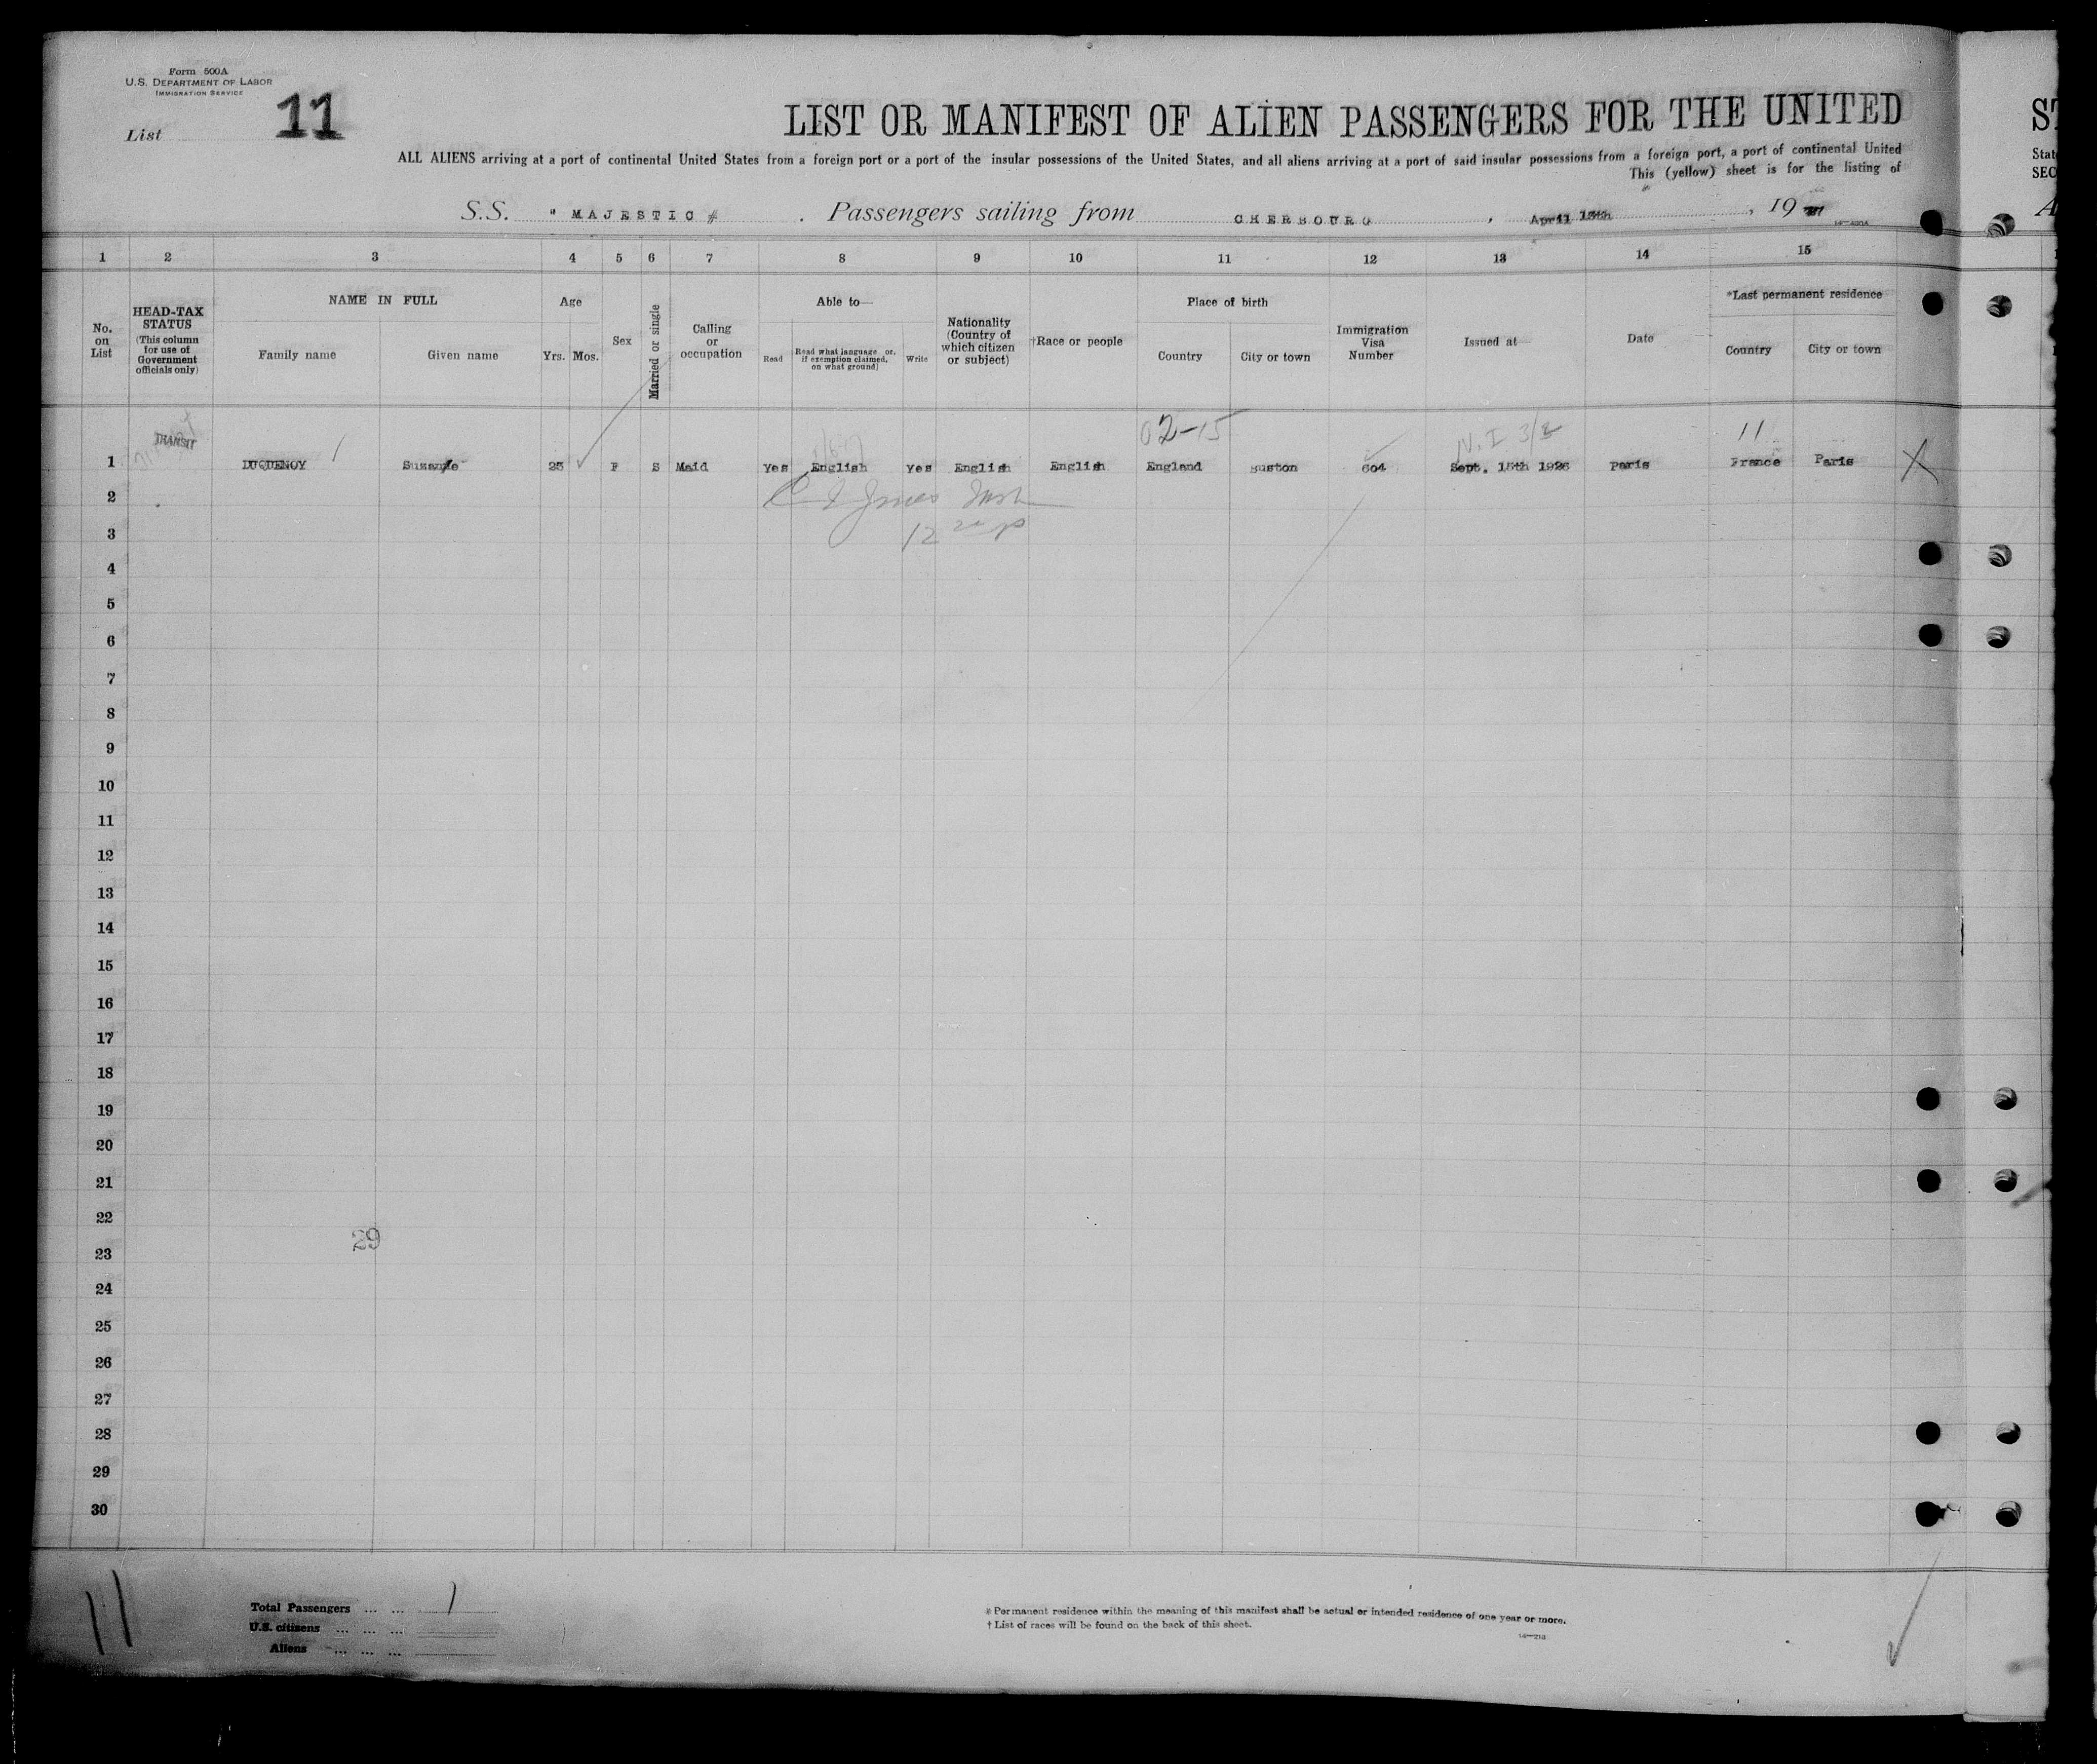 Form 500A
U.S. DEPARTMENT OF LABOR
IMMIGRATION SERVICE
List 11
LIST OR MANIFEST OF ALIEN PASSENGERS FOR THE UNITED
ALL ALIENS arriving at a port of continental United States from a foreign port or a port of the insular possessions of the United States, and all aliens arriving at a port of said insular possessions from a foreign port, a port of continental United
This (yellow) sheet is for the listing of
S.S. " MAJESTIC " . Passengers sailing from CHERBOURG , April 13th , 19
1 2 3 4 5 6 7 8 9 10 11 12 13 14 15
No. on List
HEAD-TAX STATUS
(This column for use of Government officials only)
NAME IN FULL
Family name Given name
Age
Yrs. Mos.
Sex
Married or single
Calling or occupation
Able to—
Read
Read what language or, if exemption claimed, on what ground]
Write
Nationality (Country of which citizen or subject)
†Race or people
Place of birth
Country City or town
Immigration Visa Number
Issued at—
Date
*Last permanent residence
Country City or town
TRANSIT
02-15
N.I 3/2
11
1 DUQUENOY Suzanne 25 F S Maid Yes English Yes English English England 604 Sept. 15th 1926 Paris France Paris X
2
3
4
5
6
7
8
9
10
11
12
13
14
15
16
17
18
19
20
21
22
29
23
24
25
26
27
28
29
30
11
Total Passengers ... ... 1
U.S. citizens ... ... ...
Aliens ... ... ...
* Permanent residence within the meaning of this manifest shall be actual or intended residence of one year or more.
† List of races will be found on the back of this sheet.
ST
State
SEC